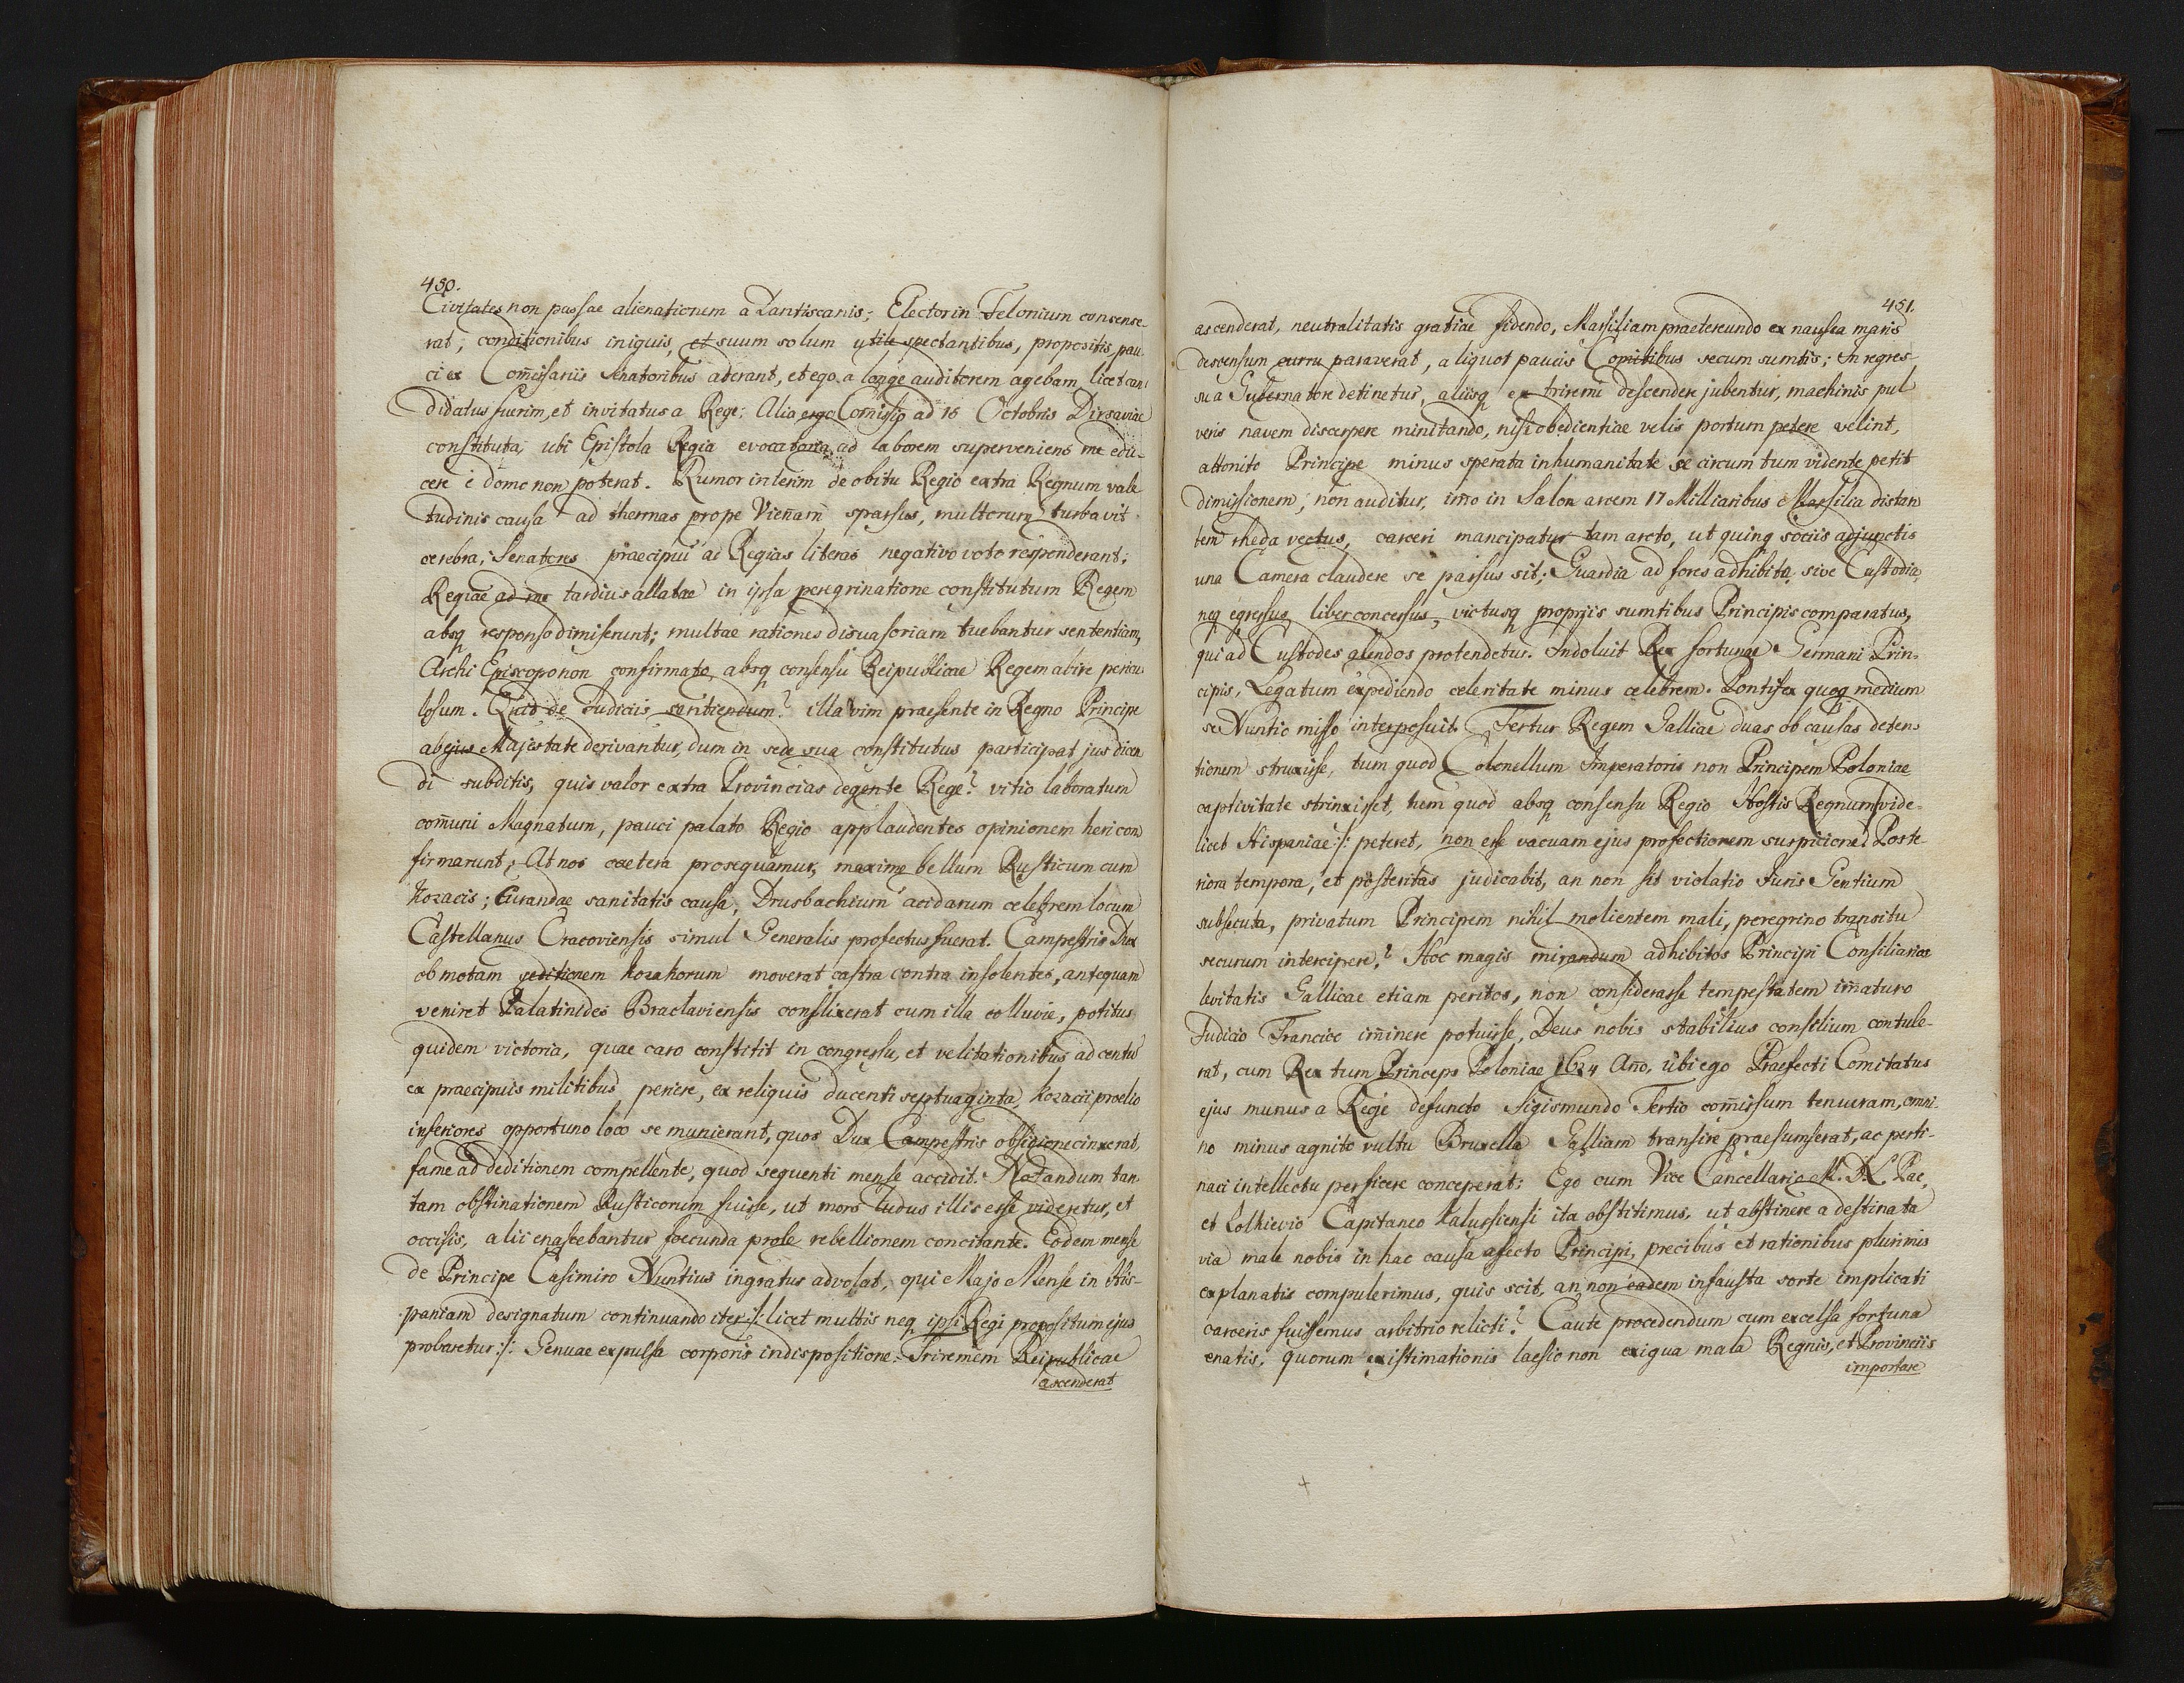 450.
Civitates non passae alienationem a Dantiscanis; Elector in Telonium consense-
rat, conditionibus iniquis, et suum solum utile spectantibus, propositis, pau-
ci ex Com̃issariis Senatoribus aderant, et ego a longe auditorem agebam, licet can-
didatus fuerim, et invitatus a Rege; Alia ergo Comissio ad 16 Octobris Dirsaviae
constituta, ubi Epistola Regia evocatoria ad laborem superveniens me edu-
cere è domo non poterat. Rumor interim de obitu Regio extra Regnum vale
tudinis causa ad thermas prope Vieñam sparsus, multorum turbavit
cerebra; Senatores praecipui ad Regias literas negativo voto responderant;
Regiae ad me tardius allatae in ipsa peregrinatione constitutum Regem
absq responso dimiserunt; multae rationes disuasoriam tuebantur sententiam,
Archi Episcopo non confirmato absq consensu Reipublicae Regem abire pericu
losum. Quid de Judiciis sentiendum? illa vim praesente in Regno Principe
ab ejus Majestate derivantur, dum in sede sua constitutus participat jus dicen
di subditis, quis valor extra Provincias degente Rege? vitio laboratum
com̃uni Magnatum, pauci palato Regio applaudentes opinionem heri con
firmarunt; At nos caetera prosequamur, maxime bellum Rusticum cum
Kozacis; Curandae sanitatis causa, Drusbachium acidarum celebrem locum
Castellanus Cracoviensis simul Generalis profectus fuerat. Campestris Dux
ob motam seditionem Kozakorum moverat castra contra insolentes, antequam
veniret Palatinides Braclaviensis conflixerat cum illa colluvie, potitus
quidem victoria, quae caro constitit in congressu, et velitationibus ad centũ
ex praecipuis militibus periere, ex reliquis ducenti septuaginta, Kozacii proelio
inferiores opportuno loco se munierant, quos Dux Campestris obsidione cinxerat,
fame ad deditionem compellente, quod sequenti mense accidit. Notandum tan
tam obstinationem Rusticorum fuisse, ut mors ludus illis esse videretur, et
occisis, alii enascebantur foecunda prole rebellionem concitante. Eodem mense
de Principe Casimiro Nuntius ingratus advolat, qui Majo Mense in His-
paniam designatum continuando iter :/: licet multis neq ipsi Regi propositum ejus
probaretur :/: Genuae expulsa corporis indispositione, Triremem Reipublicae
ascenderat
451.
ascenderat, neutralitatis gratiae fidendo, Massiliam praetereundo ex nausea maris
descensum curru paraverat, aliquot paucis Comitibus secum sumtis; In regres-
su a Gubernatore detinetur, aliisq ex triremi descendere jubentur, machinis pul
veris navem discerpere minitando, nisi obedientiae velis portum petere velint,
attonito Principe minus sperata inhumanitate se circumtum vidente petit
dimissionem, non auditur, im̃o in Salon arcem 17 Milliaribus Massilia distan
tem rheda vectus, carceri mancipatur tam arcto, ut quinq sociis adjunctis
una Camera claudere se passus sit; Guardia ad fores adhibita, sive Custodia,
neq egressus liber concessus, victusq propriis sumtibus Principis comparatus,
qui ad Custodes alendos protendetur. Indoluit Rex fortunae Germani Prin-
cipis, Legatum expediendo celeritate minus celebrem. Pontifex quoq medium
se Nuntio misso interposuit. Fertur Regem Galliae duas ob causas deten-
tionem struxisse, tum quod Colonellum Imperatoris non Principem Poloniae
captivitate strinxisset, tum quod absq consensu Regio Hostis Regnum /: vide-
licet Hispaniae :/: peteret, non esse vacuam ejus profectionem suspicione. Poste-
riora tempora, et posteritas judicabit, an non sit violatio Juris Gentium
subsecuta, privatum Principem nihil molientem mali, peregrino transitu
securum intercipere? Hoc magis mirandum adhibitos Principi Consiliarios
levitatis Gallicae etiam peritos, non considerasse tempestatem im̃aturo
Judicio Francico im̃inere potuisse, Deus nobis stabilius consilium contule-
rat, cum Rex tum Princeps Poloniae 1624 Año, ubi ego Praefecti Comitatus
ejus munus a Rege defuncto Sigismundo Tertio com̃issum tenueram, omni-
no minus agnito vultu Bruxella Galliam transire praesumserat, ac perti-
naci intellectu perficere conceperat; Ego cum Vice Cancellario M. D. L. Pac,
et Zolkievio Capitaneo Kalussiensi ita obstitimus, ut abstinere a destinata
via male nobis in hac causa afecto Principi, precibus et rationibus plurimis
explanatis compulerimus, quis scit, an non eadem infausta sorte implicati
carceris fuissemus arbitrio relicti? Caute procedendum cum excelsa fortuna
enatis, quorum existimationis laesio non exigua mala Regnis, et Provinciis
importare